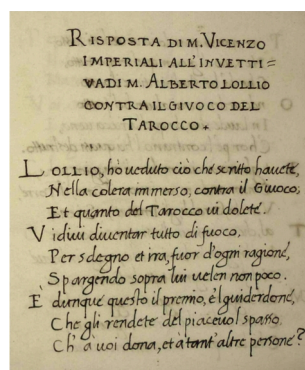 RISPOSTA DI M. VICENZO
IMPERIALI ALL'INVETTI=
VA DI M. ALBERTO LOLLIO
CONTRA IL GIVOCO DEL
TAROCCO.
LOLLIO, hò ueduto ciò che scritto hauete,
Nella colera immerso, contra il Giuoco,
Et quanto del Tarocco ui dolete.
Vidiui diuentar tutto di fuoco,
Per sdegno et ira, fuor d'ogni ragione,
Spargendo sopra lui uelen non poco.
È dunque questo il premio, è'l guiderdone,
Che gli rendete del piaceuol spasso.
Ch'à uoi dona, et à tant'altre persone?